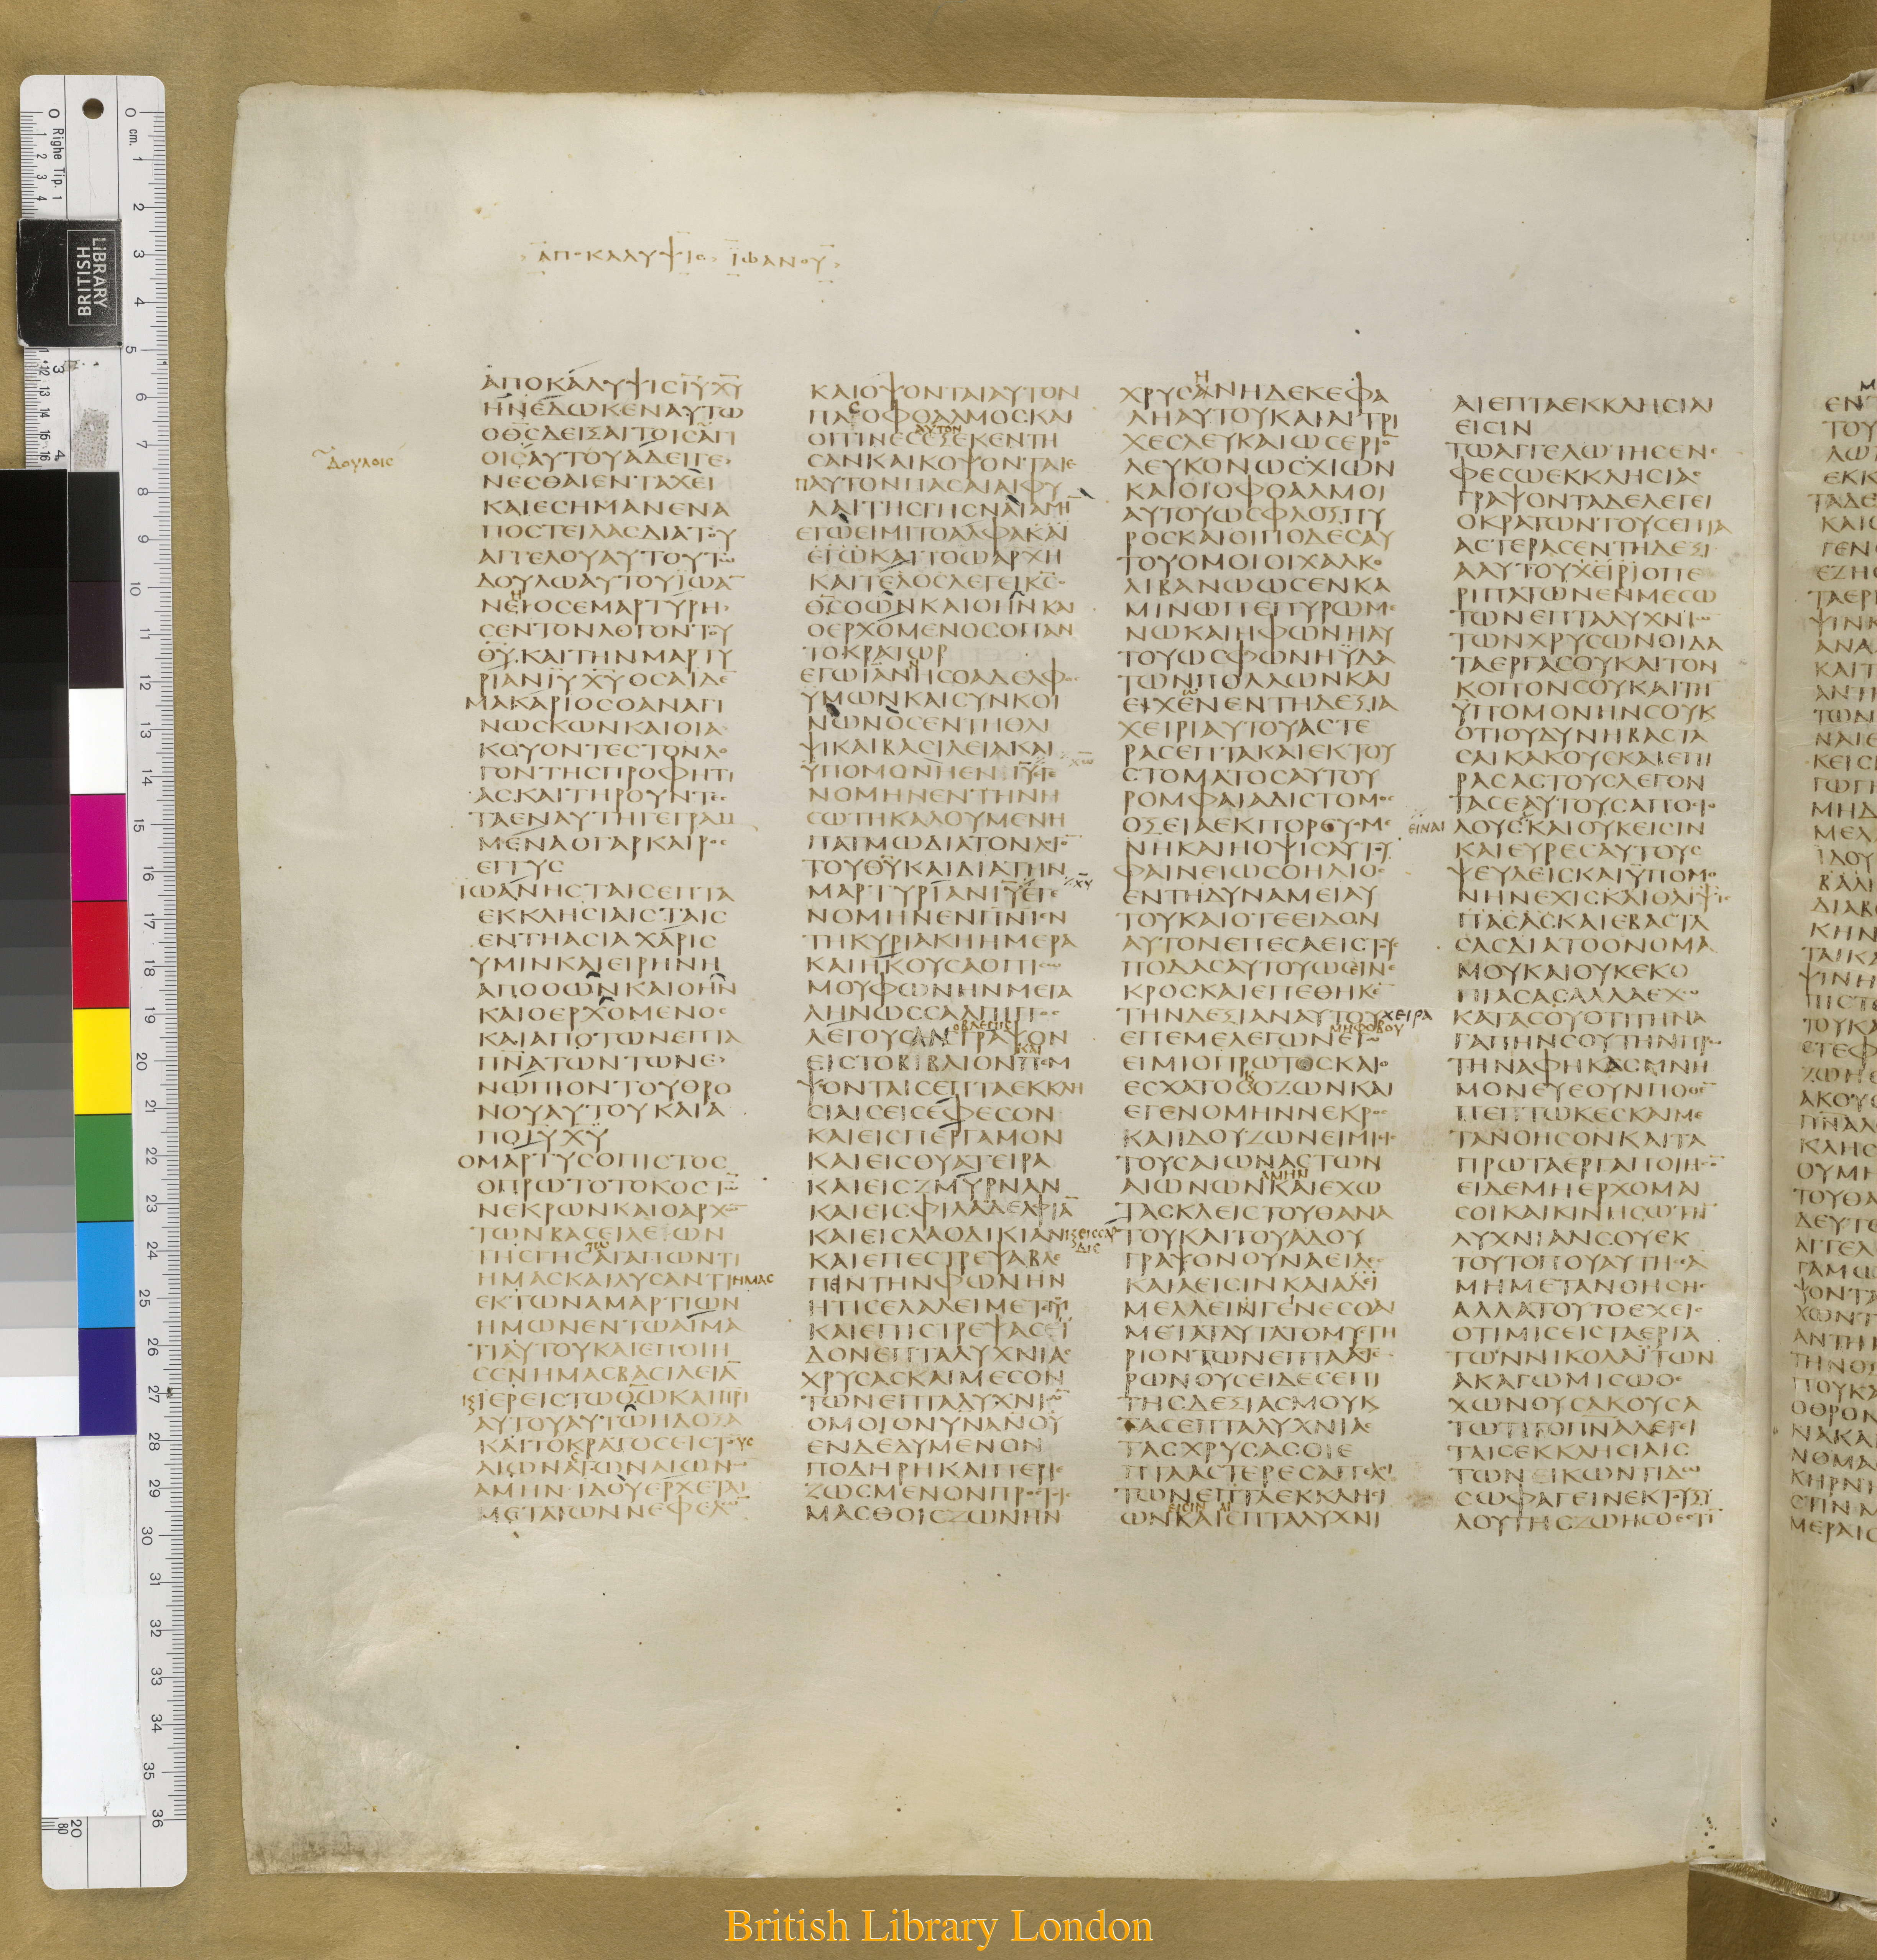 ΑΠΟΚΑΛΥΨΙϹ ΙΩΑΝΟΥ
ΔΟΥΛΟΙϹ
ΑΠΟΚΑΛΥΨΙϹΙΥΧΥ
ΗΝΕΔΩΚΕΝΑΥΤΩ
ΟΘϹΔΕΙΞΑΙΤΟΙϹΑΓΙ
ΟΙϹΑΥΤΟΥΑΔΕΙΓΕ
ΝΕϹΘΑΙΕΝΤΑΧΕΙ
ΚΑΙΕϹΗΜΑΝΕΝΑ
ΠΟϹΤΕΙΛΑϹΔΙΑΤΟΥ
ΑΓΓΕΛΟΥΑΥΤΟΥΤΩ
ΔΟΥΛΩΑΥΤΟΥΙΩΑ
ΝΕΙΟϹΕΜΑΡΤΥΡΗ
ϹΕΝΤΟΝΛΟΓΟΝΤΟΥ
ΘΥΚΑΙΤΗΝΜΑΡΤΥ
ΡΙΑΝΙΥΧΥΟϹΑΙΔΕ
ΜΑΚΑΡΙΟϹΟΑΝΑΓΙ
ΝΩϹΚΩΝΚΑΙΟΙΑ
ΚΟΥΟΝΤΕϹΤΟΝΛΟ
ΓΟΝΤΗϹΠΡΟΦΗΤΙ
ΑϹΚΑΙΤΗΡΟΥΝΤΕϹ
ΤΑΕΝΑΥΤΗΓΕΓΡΑΜ
ΜΕΝΑΟΓΑΡΚΑΙΡΟϹ
ΕΓΓΥϹ
ΙΩΑΝΗϹΤΑΙϹΕΠΤΑ
ΕΚΚΛΗϹΙΑΙϹΤΑΙϹ
ΕΝΤΗΑϹΙΑΧΑΡΙϹ
ΥΜΙΝΚΑΙΕΙΡΗΝΗ
ΑΠΟΟΩΝΚΑΙΟΗΝ
ΚΑΙΟΕΡΧΟΜΕΝΟϹ
ΚΑΙΑΠΟΤΩΝΕΠΤΑ
ΠΝΑΤΩΝΤΩΝΕ
ΝΩΠΙΟΝΤΟΥΘΡΟ
ΝΟΥΑΥΤΟΥΚΑΙΑ
ΠΟΙΥΧΥ
ΟΜΑΡΤΥϹΟΠΙϹΤΟϹ
ΟΠΡΩΤΟΤΟΚΟϹΤΩ
ΝΕΚΡΩΝΚΑΙΟΑΡΧΩ
ΤΩΝΒΑϹΕΙΛΕΙΩΝ
ΤΗϹΓΗϹΤΩΑΓΑΠΩΝΤΙ
ΗΜΑϹΚΑΙΛΥϹΑΝΤΙΗΜΑϹ
ΕΚΤΩΝΑΜΑΡΤΙΩΝ
ΗΜΩΝΕΝΤΩΑΙΜΑ
ΤΙΑΥΤΟΥΚΑΙΕΠΟΙΗ
ϹΕΝΗΜΑϹΒΑϹΙΛΕΙΑ
ΙΕΡΕΙϹΤΩΘΩΚΑΙΠΡΙ
ΑΥΤΟΥΑΥΤΩΗΔΟΞΑ
ΚΑΙΤΟΚΡΑΤΟϹΕΙϹΤΟΥϹ
ΑΙΩΝΑϹΤΩΝΑΙΩΝΩ
ΑΜΗΝΙΔΟΥΕΡΧΕΤΑΙ
ΜΕΤΑΤΩΝΝΕΦΕΛΩ
ΚΑΙΟΨΟΝΤΑΙΑΥΤΟΝ
ΠΑϹΟΦΘΑΛΜΟϹΚΑΙ
ΟΙΤΙΝΕϹΑΥΤΟΝΕΞΕΚΕΝΤΗ
ϹΑΝΚΑΙΚΟΨΟΝΤΑΙΕ
ΠΑΥΤΟΝΠΑϹΑΙΑΙΦΥ
ΛΑΙΤΗϹΓΗϹΝΑΙΑΜΗ
ΕΓΩΕΙΜΙΤΟΑΛΦΑΚΑΙ
ΕΓΩΚΑΙΤΟΩΑΡΧΗ
ΚΑΙΤΕΛΟϹΛΕΓΕΙΚϹ
ΟΘϹΟΩΝΚΑΙΟΗΝΚΑΙ
ΟΕΡΧΟΜΕΝΟϹΟΠΑΝ
ΤΟΚΡΑΤΩΡ
ΕΓΩΙΑΝΗϹΟΑΔΕΛΦΟϹ
ΥΜΩΝΚΑΙϹΥΝΚΟΙ
ΝΩΝΟϹΕΝΤΗΘΛΙ
ΨΙΚΑΙΒΑϹΙΛΕΙΑΚΑΙ
ΥΠΟΜΟΝΗΕΝΙΥΕΓΕ
ΝΟΜΗΝΕΝΤΗΝΗ
ϹΩΤΗΚΑΛΟΥΜΕΝΗ
ΠΑΤΜΩΔΙΑΤΟΝΛΟΓΟ
ΤΟΥΘΥΚΑΙΔΙΑΤΗΝ
ΜΑΡΤΥΡΙΑΝΙΥΕΓΕ
ΝΟΜΗΝΕΝΠΝΙΕΝ
ΤΗΚΥΡΙΑΚΗΗΜΕΡΑ
ΚΑΙΗΚΟΥϹΑΟΠΙϹΩ
ΜΟΥΦΩΝΗΝΜΕΓΑ
ΛΗΝΩϹϹΑΛΠΙΓΓΟϹ
ΛΕΓΟΥϹΑΝΟΒΛΕΠΙϹΓΡΑΨΟΝ
ΕΙϹΤΟΒΙΒΛΙΟΝΚΑΙΠΕΜ
ΨΟΝΤΑΙϹΕΠΤΑΕΚΚΛΗ
ϹΙΑΙϹΕΙϹΕΦΕϹΟΝ
ΚΑΙΕΙϹΠΕΡΓΑΜΟΝ
ΚΑΙΕΙϹΘΥΑΤΕΙΡΑ
ΚΑΙΕΙϹΖΜΥΡΝΑΝ
ΚΑΙΕΙϹΦΙΛΑΔΕΛΦΙΑ
ΚΑΙΕΙϹΛΑΟΔΙΚΙΑΝ
ΚΑΙΕΠΕϹΤΡΕΨΑΒΛΕ
ΠΕΙΝΤΗΝΦΩΝΗΝ
ΗΤΙϹΕΛΑΛΕΙΜΕΤΕΜΟΥ
ΚΑΙΕΠΙϹΤΡΕΨΑϹΕΙ
ΔΟΝΕΠΤΑΛΥΧΝΙΑϹ
ΧΡΥϹΑϹΚΑΙΜΕϹΟΝ
ΤΩΝΕΠΤΑΛΥΧΝΙΩ
ΟΜΟΙΟΝΥΝΑΝΟΥ
ΕΝΔΕΔΥΜΕΝΟΝ
ΠΟΔΗΡΗΚΑΙΠΕΡΙΕ
ΖΩϹΜΕΝΟΝΠΡΟϹΤΟΙϹ
ΜΑϹΘΟΙϹΖΩΝΗΝ
ΧΡΥϹΑΝΗΔΕΚΕΦΑ
ΛΗΑΥΤΟΥΚΑΙΑΙΤΡΙ
ΧΕϹΛΕΥΚΑΙΩϹΕΡΙΟ
ΛΕΥΚΟΝΩϹΧΙΩΝ
ΚΑΙΟΙΟΦΘΑΛΜΟΙ
ΑΥΤΟΥΩϹΦΛΟΞΠΥ
ΡΟϹΚΑΙΟΙΠΟΔΕϹΑΥ
ΤΟΥΟΜΟΙΟΙΧΑΛΚΟ
ΛΙΒΑΝΩΩϹΕΝΚΑ
ΜΙΝΩΠΕΠΥΡΩΜΕ
ΝΩΚΑΙΗΦΩΝΗΑΥ
ΤΟΥΩϹΦΩΝΗΥΔΑ
ΤΩΝΠΟΛΛΩΝΚΑΙ
ΕΙΧΕΝΕΝΤΗΔΕΞΙΑ
ΧΕΙΡΙΑΥΤΟΥΑϹΤΕ
ΡΑϹΕΠΤΑΚΑΙΕΚΤΟΥ
ϹΤΟΜΑΤΟϹΑΥΤΟΥ
ΡΟΜΦΑΙΑΔΙϹΤΟΜΟϹ
ΟΞΕΙΑΕΚΠΟΡΕΥΟΜΕ
ΝΗΚΑΙΗΟΨΙϹΑΥΤΟΥ
ΦΑΙΝΕΙΩϹΟΗΛΙΟϹ
ΕΝΤΗΔΥΝΑΜΕΙΑΥ
ΤΟΥΚΑΙΟΤΕΕΙΔΟΝ
ΑΥΤΟΝΕΠΕϹΑΕΙϹΤΟΥϹ
ΠΟΔΑϹΑΥΤΟΥΩϹΕΙΝΕ
ΚΡΟϹΚΑΙΕΠΕΘΗΚΕ
ΤΗΝΔΕΞΙΑΝΑΥΤΟΥΧΕΙΡΑ
ΕΠΕΜΕΛΕΓΩΝΜΗΦΟΒΟΥΕΓΩ
ΕΙΜΙΟΠΡΩΤΟϹΚΑΙΟ
ΕϹΧΑΤΟϹΟΖΩΝΚΑΙ
ΕΓΕΝΟΜΗΝΝΕΚΡΟϹ
ΚΑΙΙΔΟΥΖΩΝΕΙΜΙΕΙϹ
ΤΟΥϹΑΙΩΝΑϹΤΩΝ
ΑΙΩΝΩΝΑΜΗΝΚΑΙΕΧΩ
ΤΑϹΚΛΕΙϹΤΟΥΘΑΝΑ
ΤΟΥΚΑΙΤΟΥΑΔΟΥ
ΓΡΑΨΟΝΟΥΝΑΕΙΔΕϹ
ΚΑΙΑΕΙϹΙΝΚΑΙΑΔΕΙ
ΜΕΛΛΕΙΝΓΕΝΕϹΘΑΙ
ΜΕΤΑΤΑΥΤΑΤΟΜΥϹΤΗ
ΡΙΟΝΤΩΝΕΠΤΑΑϹΤΕ
ΡΩΝΟΥϹΕΙΔΕϹΕΠΙ
ΤΗϹΔΕΞΙΑϹΜΟΥΚΑΙ
ΤΑϹΕΠΤΑΛΥΧΝΙΑϹ
ΤΑϹΧΡΥϹΑϹΟΙΕ
ΠΤΑΑϹΤΕΡΕϹΑΓΓΕΛΟΙ
ΤΩΝΕΠΤΑΕΚΚΛΗϹΙ
ΩΝΕΙϹΙΝΚΑΙΑΙΕΠΤΑΛΥΧΝΙ
ΑΙΕΠΤΑΕΚΚΛΗϹΙΑΙ
ΕΙϹΙΝ
ΤΩΑΓΓΕΛΩΤΗϹΕΝΕ
ΦΕϹΩΕΚΚΛΗϹΙΑϹ
ΓΡΑΨΟΝΤΑΔΕΛΕΓΕΙ
ΟΚΡΑΤΩΝΤΟΥϹΕΠΤΑ
ΑϹΤΕΡΑϹΕΝΤΗΔΕΞΙ
ΑΑΥΤΟΥΧΕΙΡΙΟΠΕ
ΡΙΠΑΤΩΝΕΝΜΕϹΩ
ΤΩΝΕΠΤΑΛΥΧΝΙΩ
ΤΩΝΧΡΥϹΩΝΟΙΔΑ
ΤΑΕΡΓΑϹΟΥΚΑΙΤΟΝ
ΚΟΠΟΝϹΟΥΚΑΙΤΗ
ΥΠΟΜΟΝΗΝϹΟΥΚ
ΟΤΙΟΥΔΥΝΗΒΑϹΤΑ
ϹΑΙΚΑΚΟΥϹΚΑΙΕΠΙ
ΡΑϹΑϹΤΟΥϹΛΕΓΟΝ
ΤΑϹΕΑΥΤΟΥϹΑΠΟϹΤΟ
ΕΙΝΑΙ
ΛΟΥϹΚΑΙΟΥΚΕΙϹΙΝ
ΚΑΙΕΥΡΕϹΑΥΤΟΥϹ
ΨΕΥΔΕΙϹΚΑΙΥΠΟΜΟ
ΝΗΝΕΧΙϹΚΑΙΘΛΙΨΙϹ
ΠΑϹΑϹΚΑΙΕΒΑϹΤΑ
ϹΑϹΔΙΑΤΟΟΝΟΜΑ
ΜΟΥΚΑΙΟΥΚΕΚΟ
ΠΙΑϹΑϹΑΛΛΑΕΧΩ
ΚΑΤΑϹΟΥΟΤΙΤΗΝΑ
ΓΑΠΗΝϹΟΥΤΗΝΠΡΩ
ΤΗΝΑΦΗΚΑϹΜΝΗ
ΜΟΝΕΥΕΟΥΝΠΟΘΕ
ΠΕΠΤΩΚΕϹΚΑΙΜΕ
ΤΑΝΟΗϹΟΝΚΑΙΤΑ
ΠΡΩΤΑΕΡΓΑΠΟΙΗϹΟ
ΕΙΔΕΜΗΕΡΧΟΜΑΙ
ϹΟΙΚΑΙΚΙΝΗϹΩΤΗ
ΛΥΧΝΙΑΝϹΟΥΕΚ
ΤΟΥΤΟΠΟΥΑΥΤΗϹΕΑ
ΜΗΜΕΤΑΝΟΗϹΗϹ
ΑΛΛΑΤΟΥΤΟΕΧΕΙϹ
ΟΤΙΜΙϹΕΙϹΤΑΕΡΓΑ
ΤΩΝΝΙΚΟΛΑΙΤΩΝ
ΑΚΑΓΩΜΙϹΩΟ
ΕΧΩΝΟΥϹΑΚΟΥϹΑ
ΤΩΤΙΤΟΠΝΑΛΕΓΕΙ
ΤΑΙϹΕΚΚΛΗϹΙΑΙϹ
ΤΩΝΕΙΚΩΝΤΙΔΩ
ϹΩΦΑΓΕΙΝΕΚΤΟΥΞΥ
ΛΟΥΤΗϹΖΩΗϹΟΕϹΤΙ
BRITISH LIBRARY
British Library London